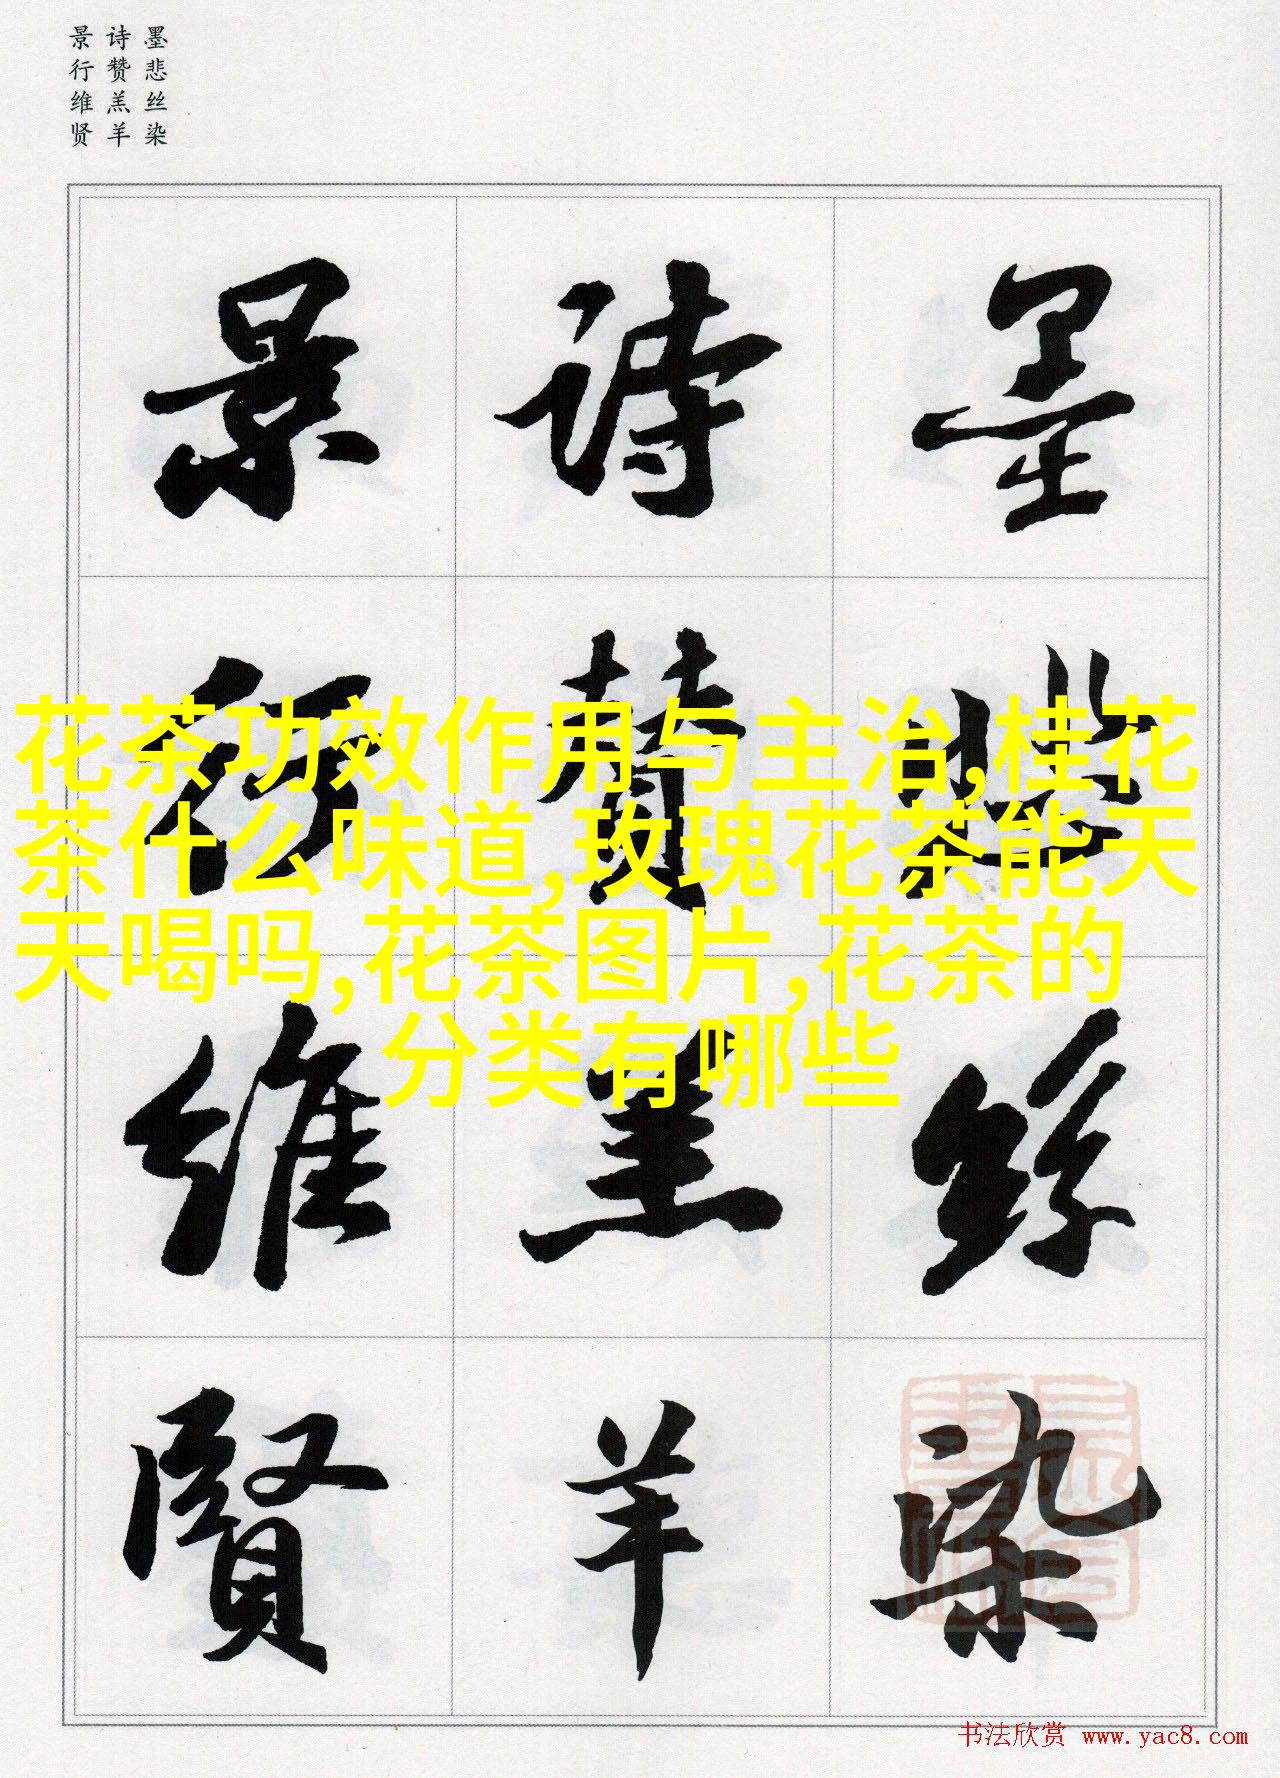 墨悲丝染
诗赞羔羊
景行维贤
墨悲絲染
詩贊羔羊
景行維賢
花茶功效作用与主治,桂花
茶什么味道,玫瑰花茶能天
天喝吗,花茶图片,花茶的
分类有哪些
书法欣赏 www.yac8.com